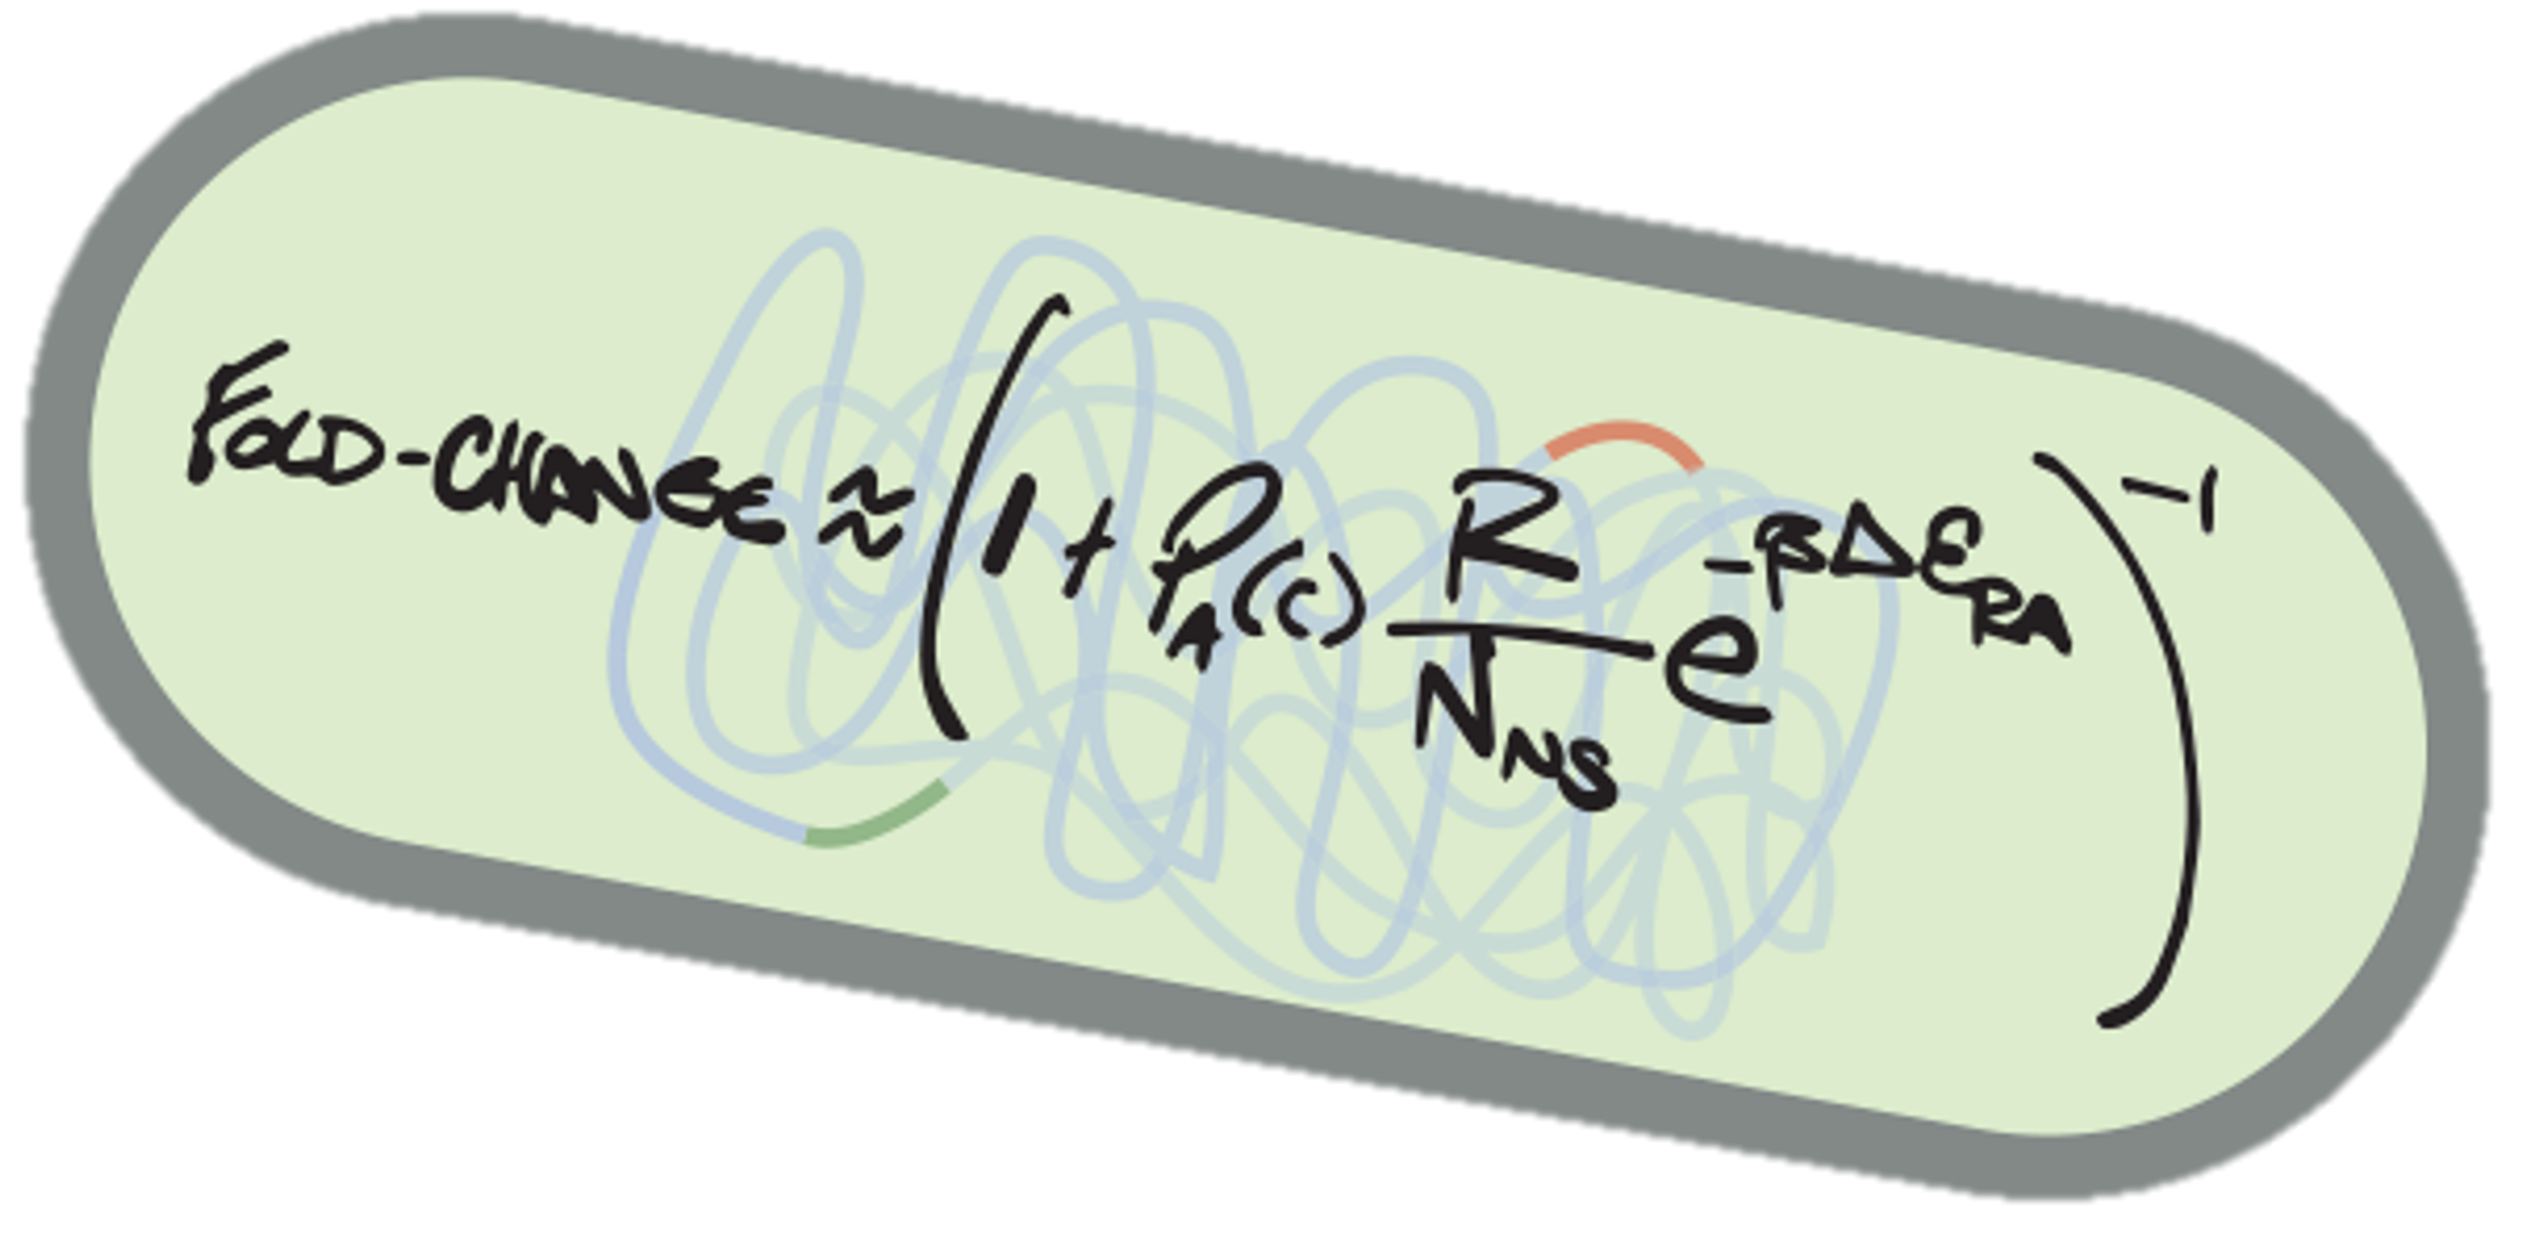 FOLD-CHANGE ≈ (1 + P_A(c) \frac{R}{N_{NS}} e^{-βΔε_{RA}})^{-1}